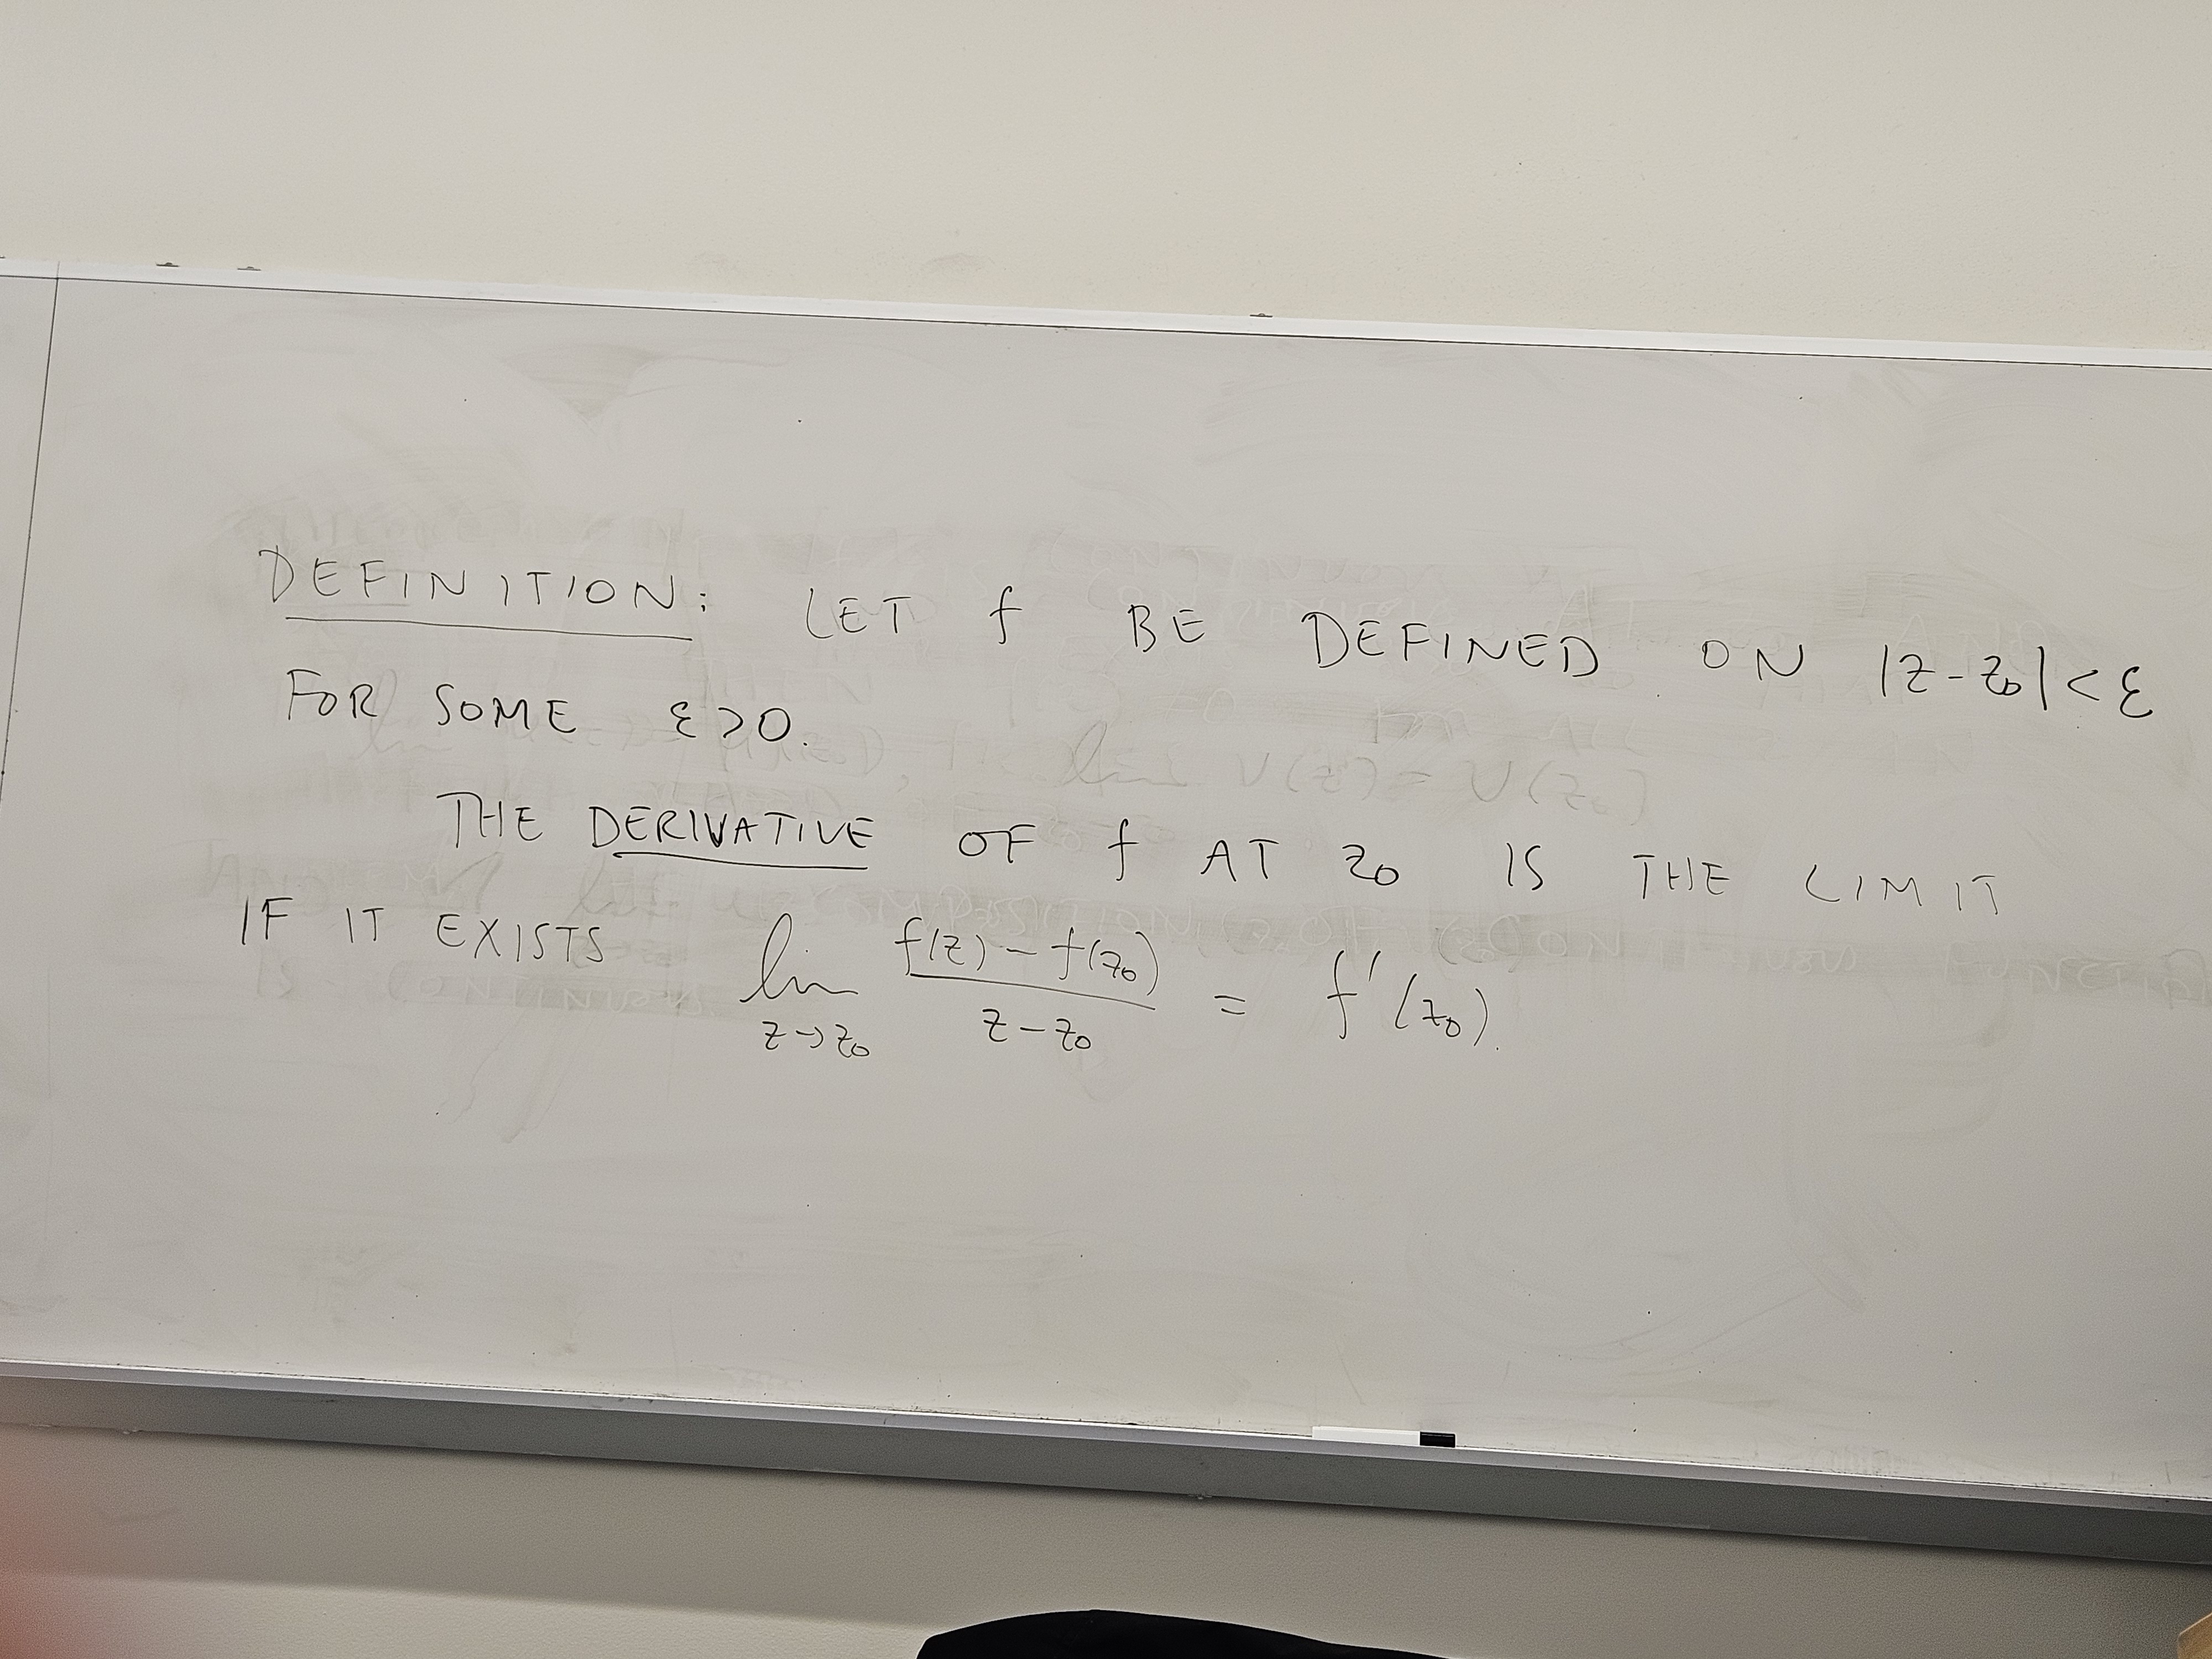 DEFINITION: LET f BE DEFINED ON |z-z₀|<ε
FOR SOME ε>0.
THE DERIVATIVE OF f AT z₀ IS THE LIMIT
IF IT EXISTS lim z→z₀ (f(z)-f(z₀))/(z-z₀) = f'(z₀).